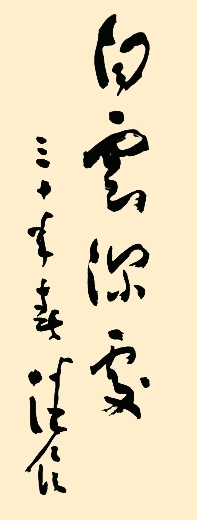 白雲深處
三十年春